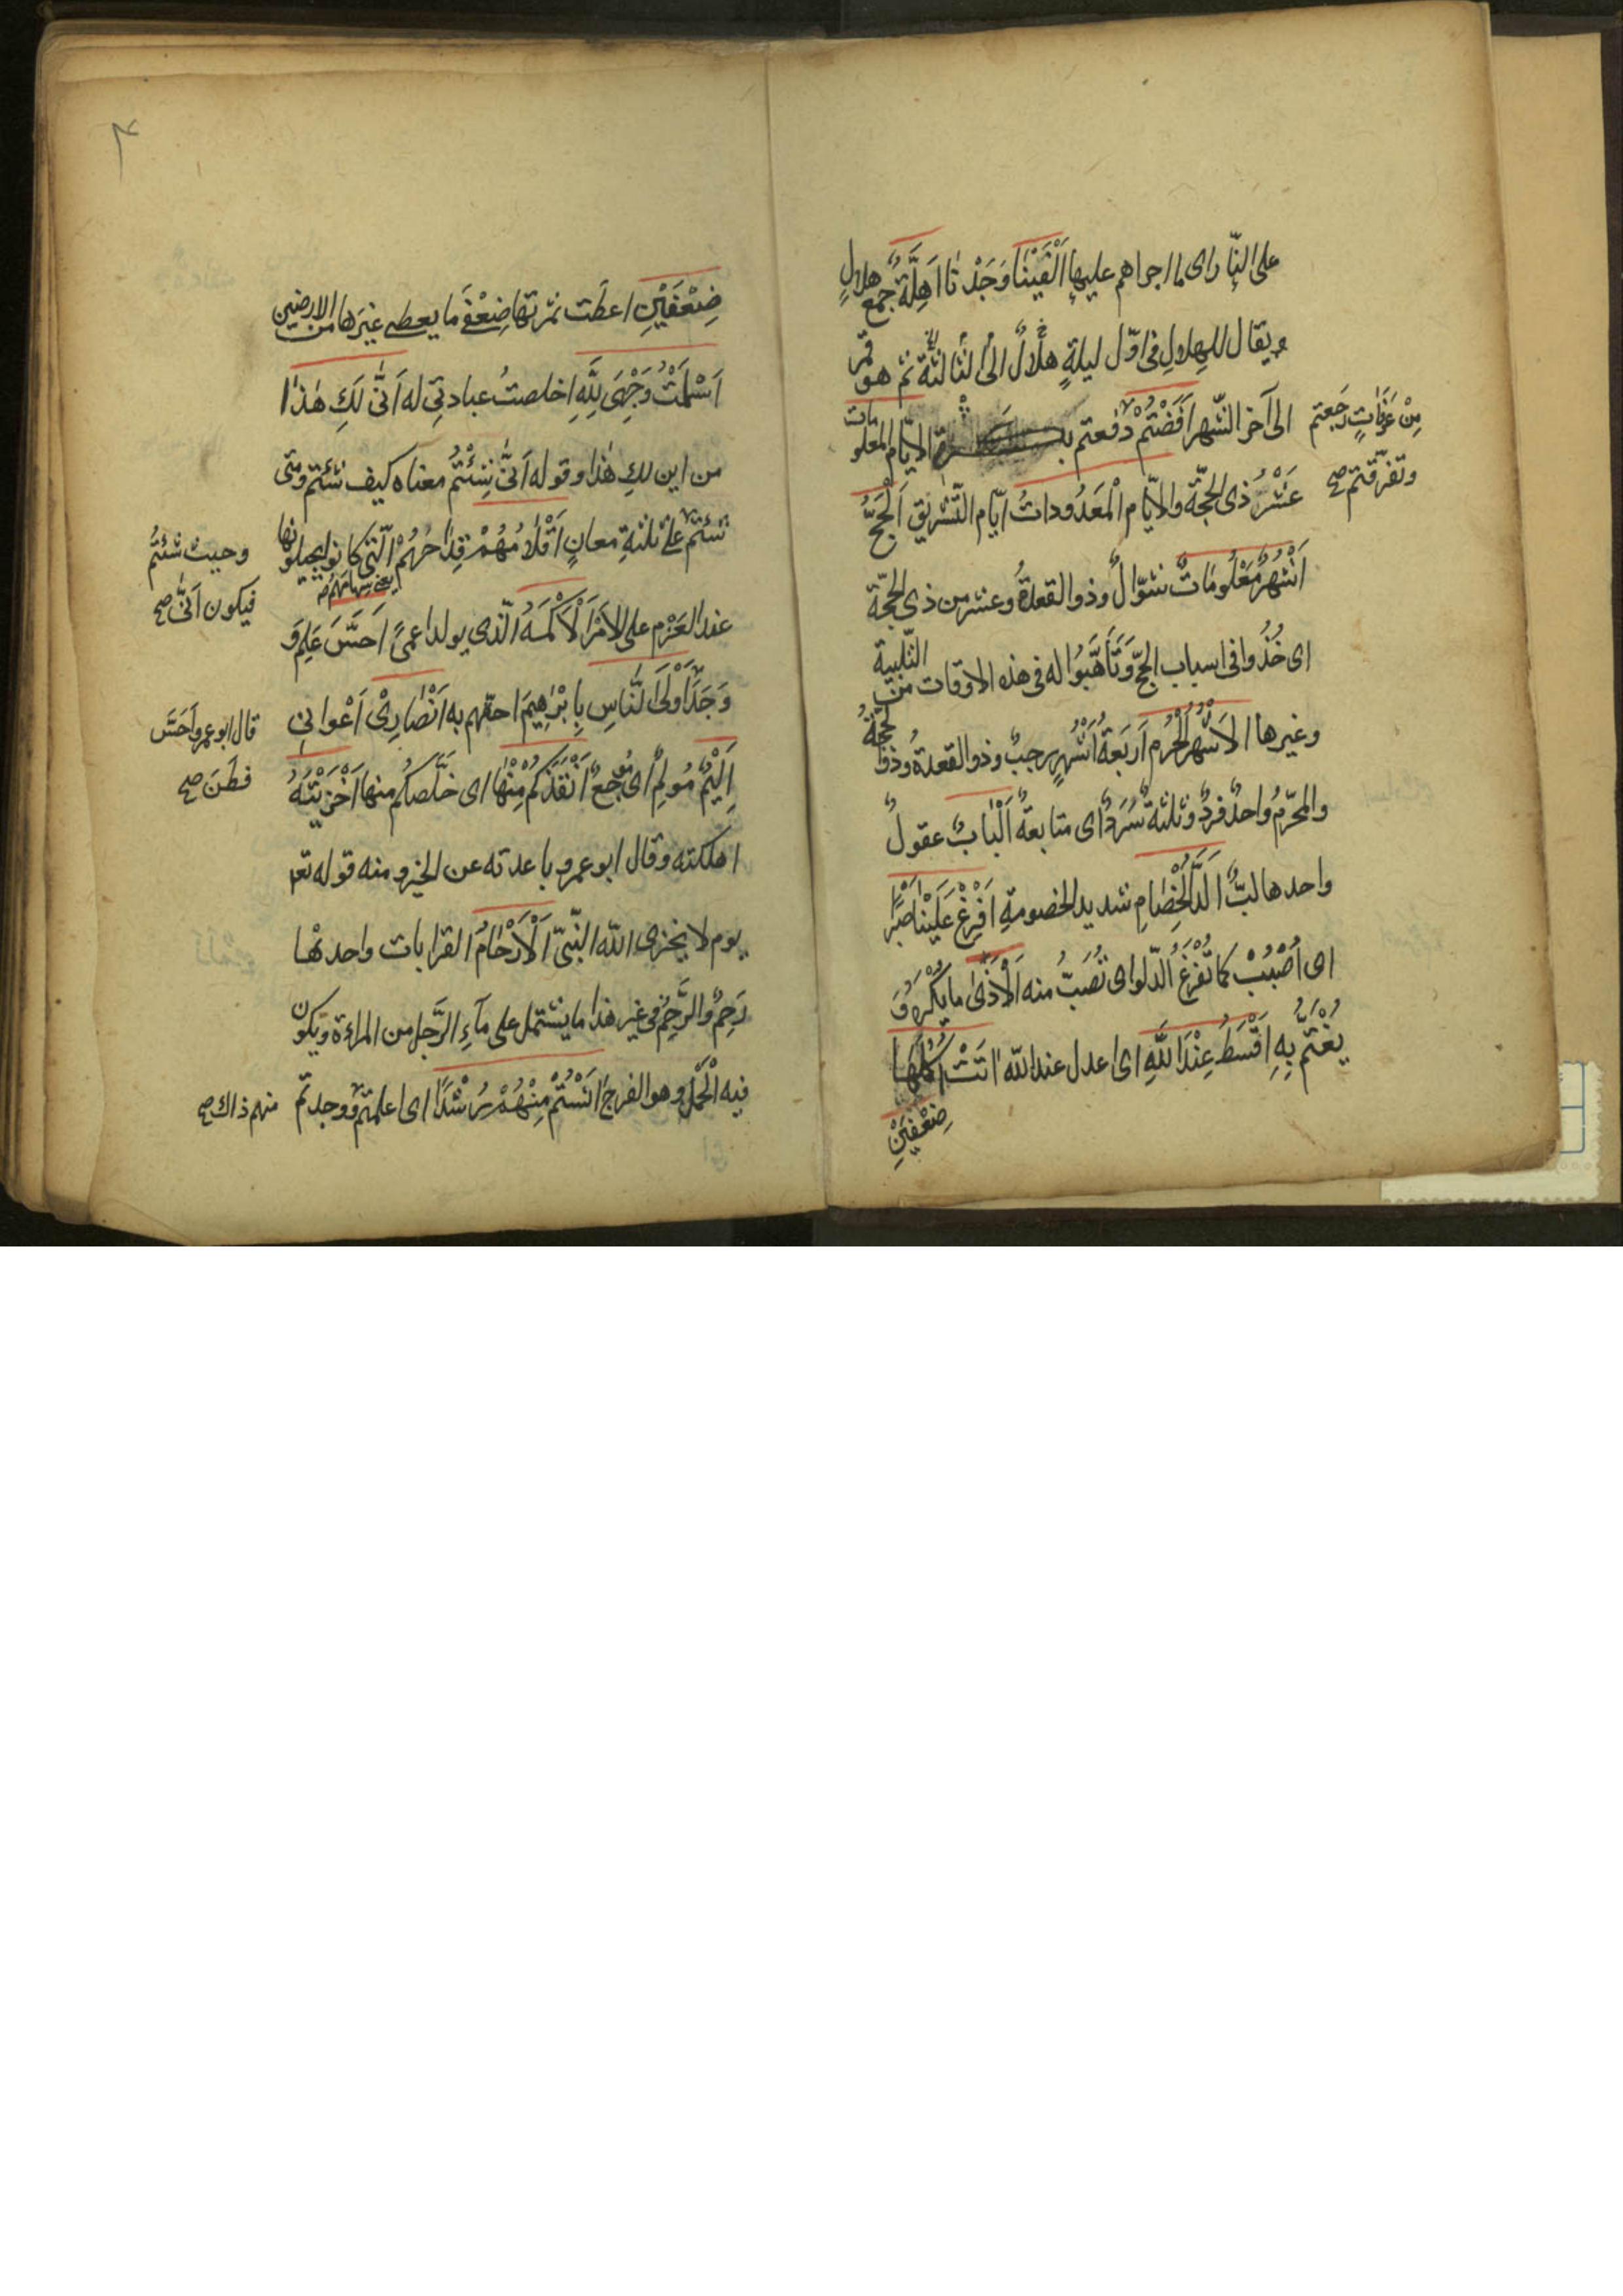 على النّار اى ما اجراهم عليها اَلْفَيْنَا وَجَدْنَا اَهِلَّةٌ جمع هلالٍ
ويقال للهلالِ فى اوّل ليلةٍ هلالٌ الى الثّالثة ثمّ هو قمر
الى آخر الشّهر اَفَضْتُمْ دفعتم الايّام المعلومات
مِنْ عَرَفَاتٍ رجعتم
وتفرّقتم صح
عَشْرُ ذى الحجّة والايّام الْمَعدُودات ايّام التّشريق اَلْحَجُّ
اَشْهُرٌ مَعْلُومَاتٌ شوّالٌ وذو القعدة وعشر من ذى الحجّة
اى خُذُوا فى اسباب الحجّ وَتَأَهَّبُوا له فى هذه الاوقات من التّلبية
وغيرها الاَشْهُرُ الْحُرُم اَربَعَةُ اَشْهُرٍ رجبٌ وذو القعدة وذو الحجّة
والمحرّم واحدٌ فردٌ وثلثةٌ سَرَدٌ اى متابعةٌ اَلْبَابٌ عقولٌ
واحدها لبٌّ اَلَدُّ الْخِصَامِ شديد الخصومةِ اَفْرِغْ عَلَيْنَا صَبْرًا
اى اُصْبُبْ كما تُفْرَغُ الدّلو اى تُصَبُّ منه اَلْاَذَىٰ ما يُكْرَهُ وَ
يُغْتَمُّ بِهِ اَقْسَطُ عِنْدَ اللّٰهِ اى اعدل عند الله اتَتْ اُكُلَهَا
ضِعْفَيْنِ
٣
ضِعْفَيْنِ اعطَت ثمرتها ضِعْفَىْ ما يعطى غيرَها من الارضين
اَسْلَمْتُ وَجْهِىَ لِلّٰهِ اخلصتُ عبادتى له اَنّٰى لَكِ هٰذَا
من اين لكِ هذا وقوله اَنّٰى شِئْتُمْ معناه كيف شئتم ومتى
شئتم على ثلثةِ معانٍ اَقْلَامُهُمْ قِدَاحُهُمْ الّتى كانوا يجيلونها
وحيث شئتم
فيكون اَنّٰى صح
يعنى سهامهم
عند العَزْمِ على الاَمْرِ اَلْاَكْمَهُ الّذى يولد اعمىً اَحَسَّ عَلِمَ وَ
وَجَدَ اَوْلَى النَّاسِ بِاِبْرٰهِيمَ احقّهم به اَنْصَارِىْ اَعْوانى
قال ابو عمرو اَحَسَّ
فطَنَ صح
اَلِيْمٌ مُولِمٌ اى مُوجعٌ اَنْقَذَكُمْ مِنْهَا اى خَلَّصكُم منها اَخْزَيْتَهُ
اهلكته وقال ابو عمرو باعدته عن الخير ومنه قوله تع
يوم لا يخزى الله النّبىّ اَلْاَرْحَامُ القرابات واحدتها
رَحِمٌ والرَّحِمُ فى غير هذا ما يشتمل على مآءِ الرَّجل من المراءة ويكون
فيه الْحَمْلُ وهو الفرج اٰنَسْتُمْ مِنْهُمْ رُشْدًا اى اعلمتم ووجدتم
منهم ذاك صح